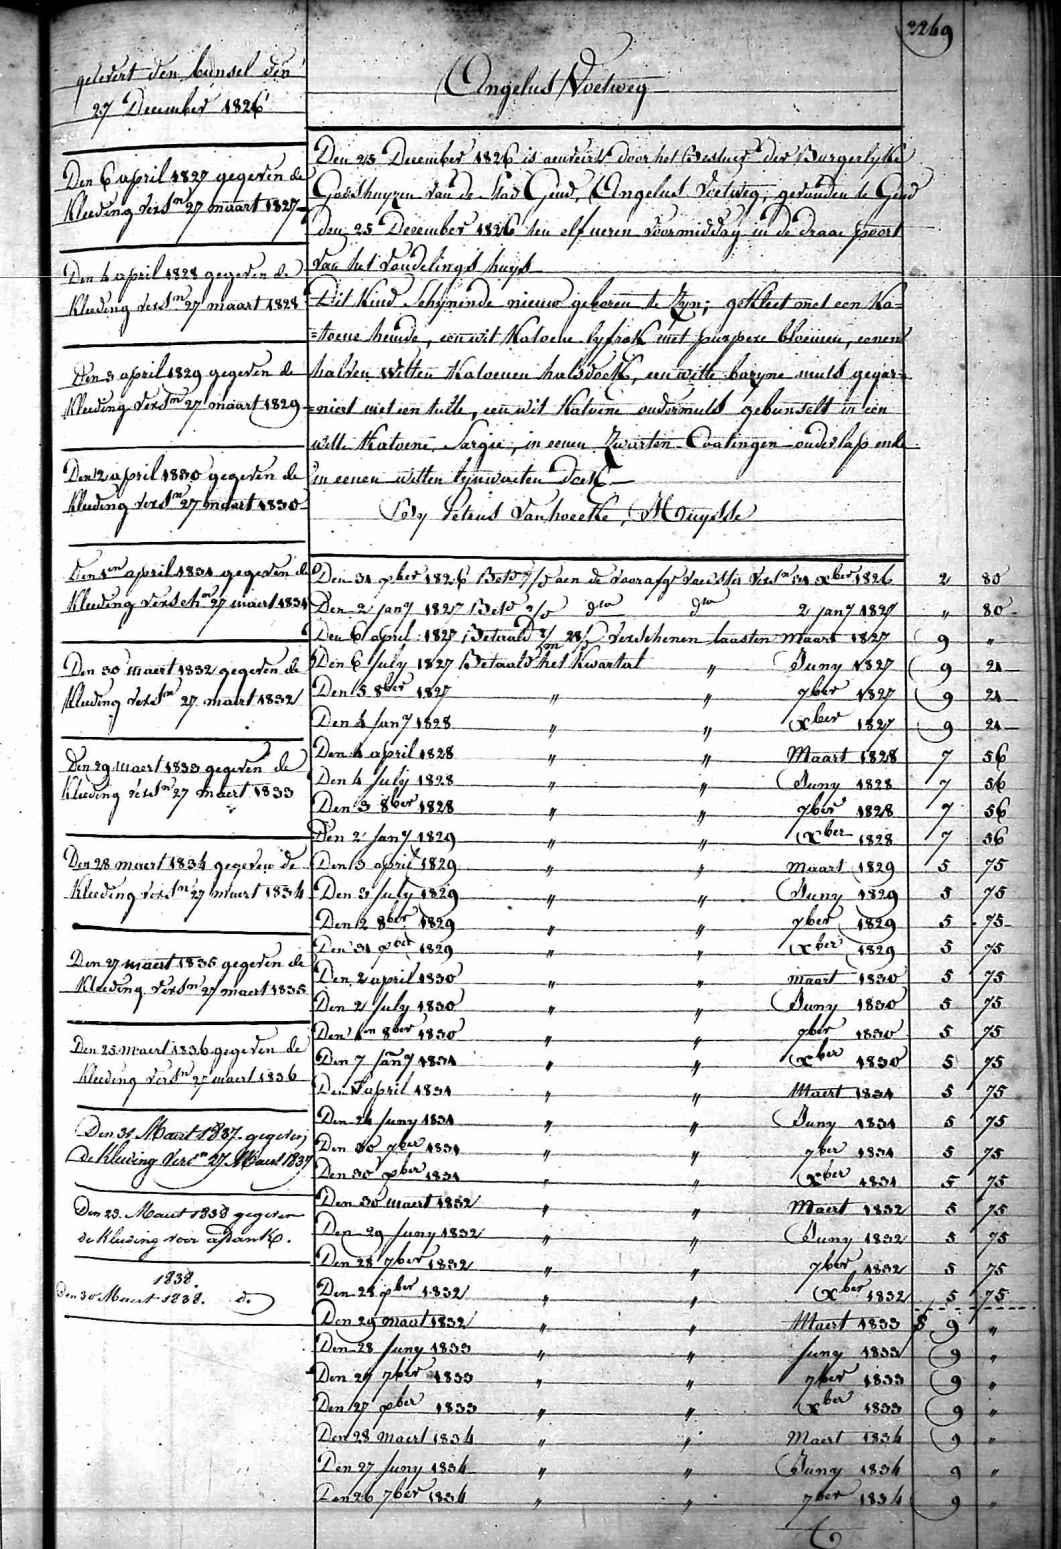 2269
gelevert den bunsel den
27 December 1826
Den 6 april 1827 gegeven de
Kleeding versn 27 maart 1827
Den 4 april 1828 gegeven de
Kleeding versn 27 maart 1828
Den 3 april 1829 gegeven de
Kleeding versn 27 maart 1829
Den 2 april 1830 gegeven de
Kleeding versn 27 maart 1830
Den 1en april 1831 gegeven de
Kleeding verschn 27 maert 1831
Den 30 maert 1832 gegeven de
Kleeding versn 27 maert 1832
Den 29 maert 1833 gegeven de
Kleeding versn 27 maert 1833
Den 28 maert 1834 gegeven de
Kleeding versn 27 maert 1834
Den 27 maert 1835 gegeven de
Kleeding versn 27 maert 1835
Den 25 maert 1836 gegeven de
Kleeding versn 27 maert 1836
Den 31 Maart 1837 gegeven
de Kleeding versn 27 Maart 1837
Den 23 Maart 1838 gegeven
de Kleeding voor
1838.
Den 30 Maart 1838. do
Angelus Voetweg
Den 25 December 1826 is aenveird door het Bestuer der Burgerlyke
Godshuyzen van de Stad Gend, Angelus Voetweg, gevonden te Gend
den 25 December 1826 ten elf ueren voormiddag in de draae poort
van het vondelings huys
Dit Kind schynende nieuw geboren te zyn; gekleet met een Ka=
=toene hemde, een wit Katoene lyfrok met purpere bloemen, eenen
halven witten Katoenen halsdoek, een witte bazyne muts gegar=
=niert met een tulle, een wit Katoene ondermuts gebunselt in een
witte Katoene Sargie, in eenen zwarten Coatingen onderlap ende
in eenen witten lynwaeten doek
Petrus Vanhoecke,
Den 31 xber 1826 Betd aen de versn 31 xber 1826 2 80
Den 2 jany 1827 Betd do do 2 jany 1827 " 80
Den 6 april 1827 Betaald verschenen laasten Maart 1827 9 "
Den 6 July 1827 Betaald het Kwartal " Juny 1827 9 21
Den 5 8ber 1827 " " 7ber 1827 9 21
Den 4 jany 1828 " " xber 1827 9 21
Den 4 april 1828 " " Maart 1828 7 56
Den 4 July 1828 " " Juny 1828 7 56
Den 3 8ber 1828 " " 7ber 1828 7 56
Den 2 jany 1829 " " xber 1828 7 56
Den 3 april 1829 " " maart 1829 5 75
Den 3 July 1829 " " Juny 1829 5 75
Den 2 8ber 1829 " " 7ber 1829 5 75
Den 31 xber 1829 " " xber 1829 5 75
Den 2 april 1830 " " maart 1830 5 75
Den 2 July 1830 " " Juny 1830 5 75
Den 1en 8ber 1830 " " 7ber 1830 5 75
Den 7 jany 1831 " " xber 1830 5 75
Den 1 april 1831 " " Maert 1831 5 75
Den 24 juny 1831 " " Juny 1831 5 75
Den 30 7ber 1831 " " 7ber 1831 5 75
Den 30 xber 1831 " " xber 1831 5 75
Den 30 maert 1832 " " Maert 1832 5 75
Den 29 Juny 1832 " " Juny 1832 5 75
Den 28 7ber 1832 " " 7ber 1832 5 75
Den 28 xber 1832 " " xber 1832 5 75
Den 29 maert 1832 " " Maert 1833 9 "
Den 28 Juny 1833 " " Juny 1833 9 "
Den 27 7ber 1833 " " 7ber 1833 9 "
Den 27 xber 1833 " " xber 1833 9 "
Den 28 maert 1834 " " Maert 1834 9 "
Den 27 Juny 1834 " " Juny 1834 9 "
Den 26 7ber 1834 " " 7ber 1834 9 "